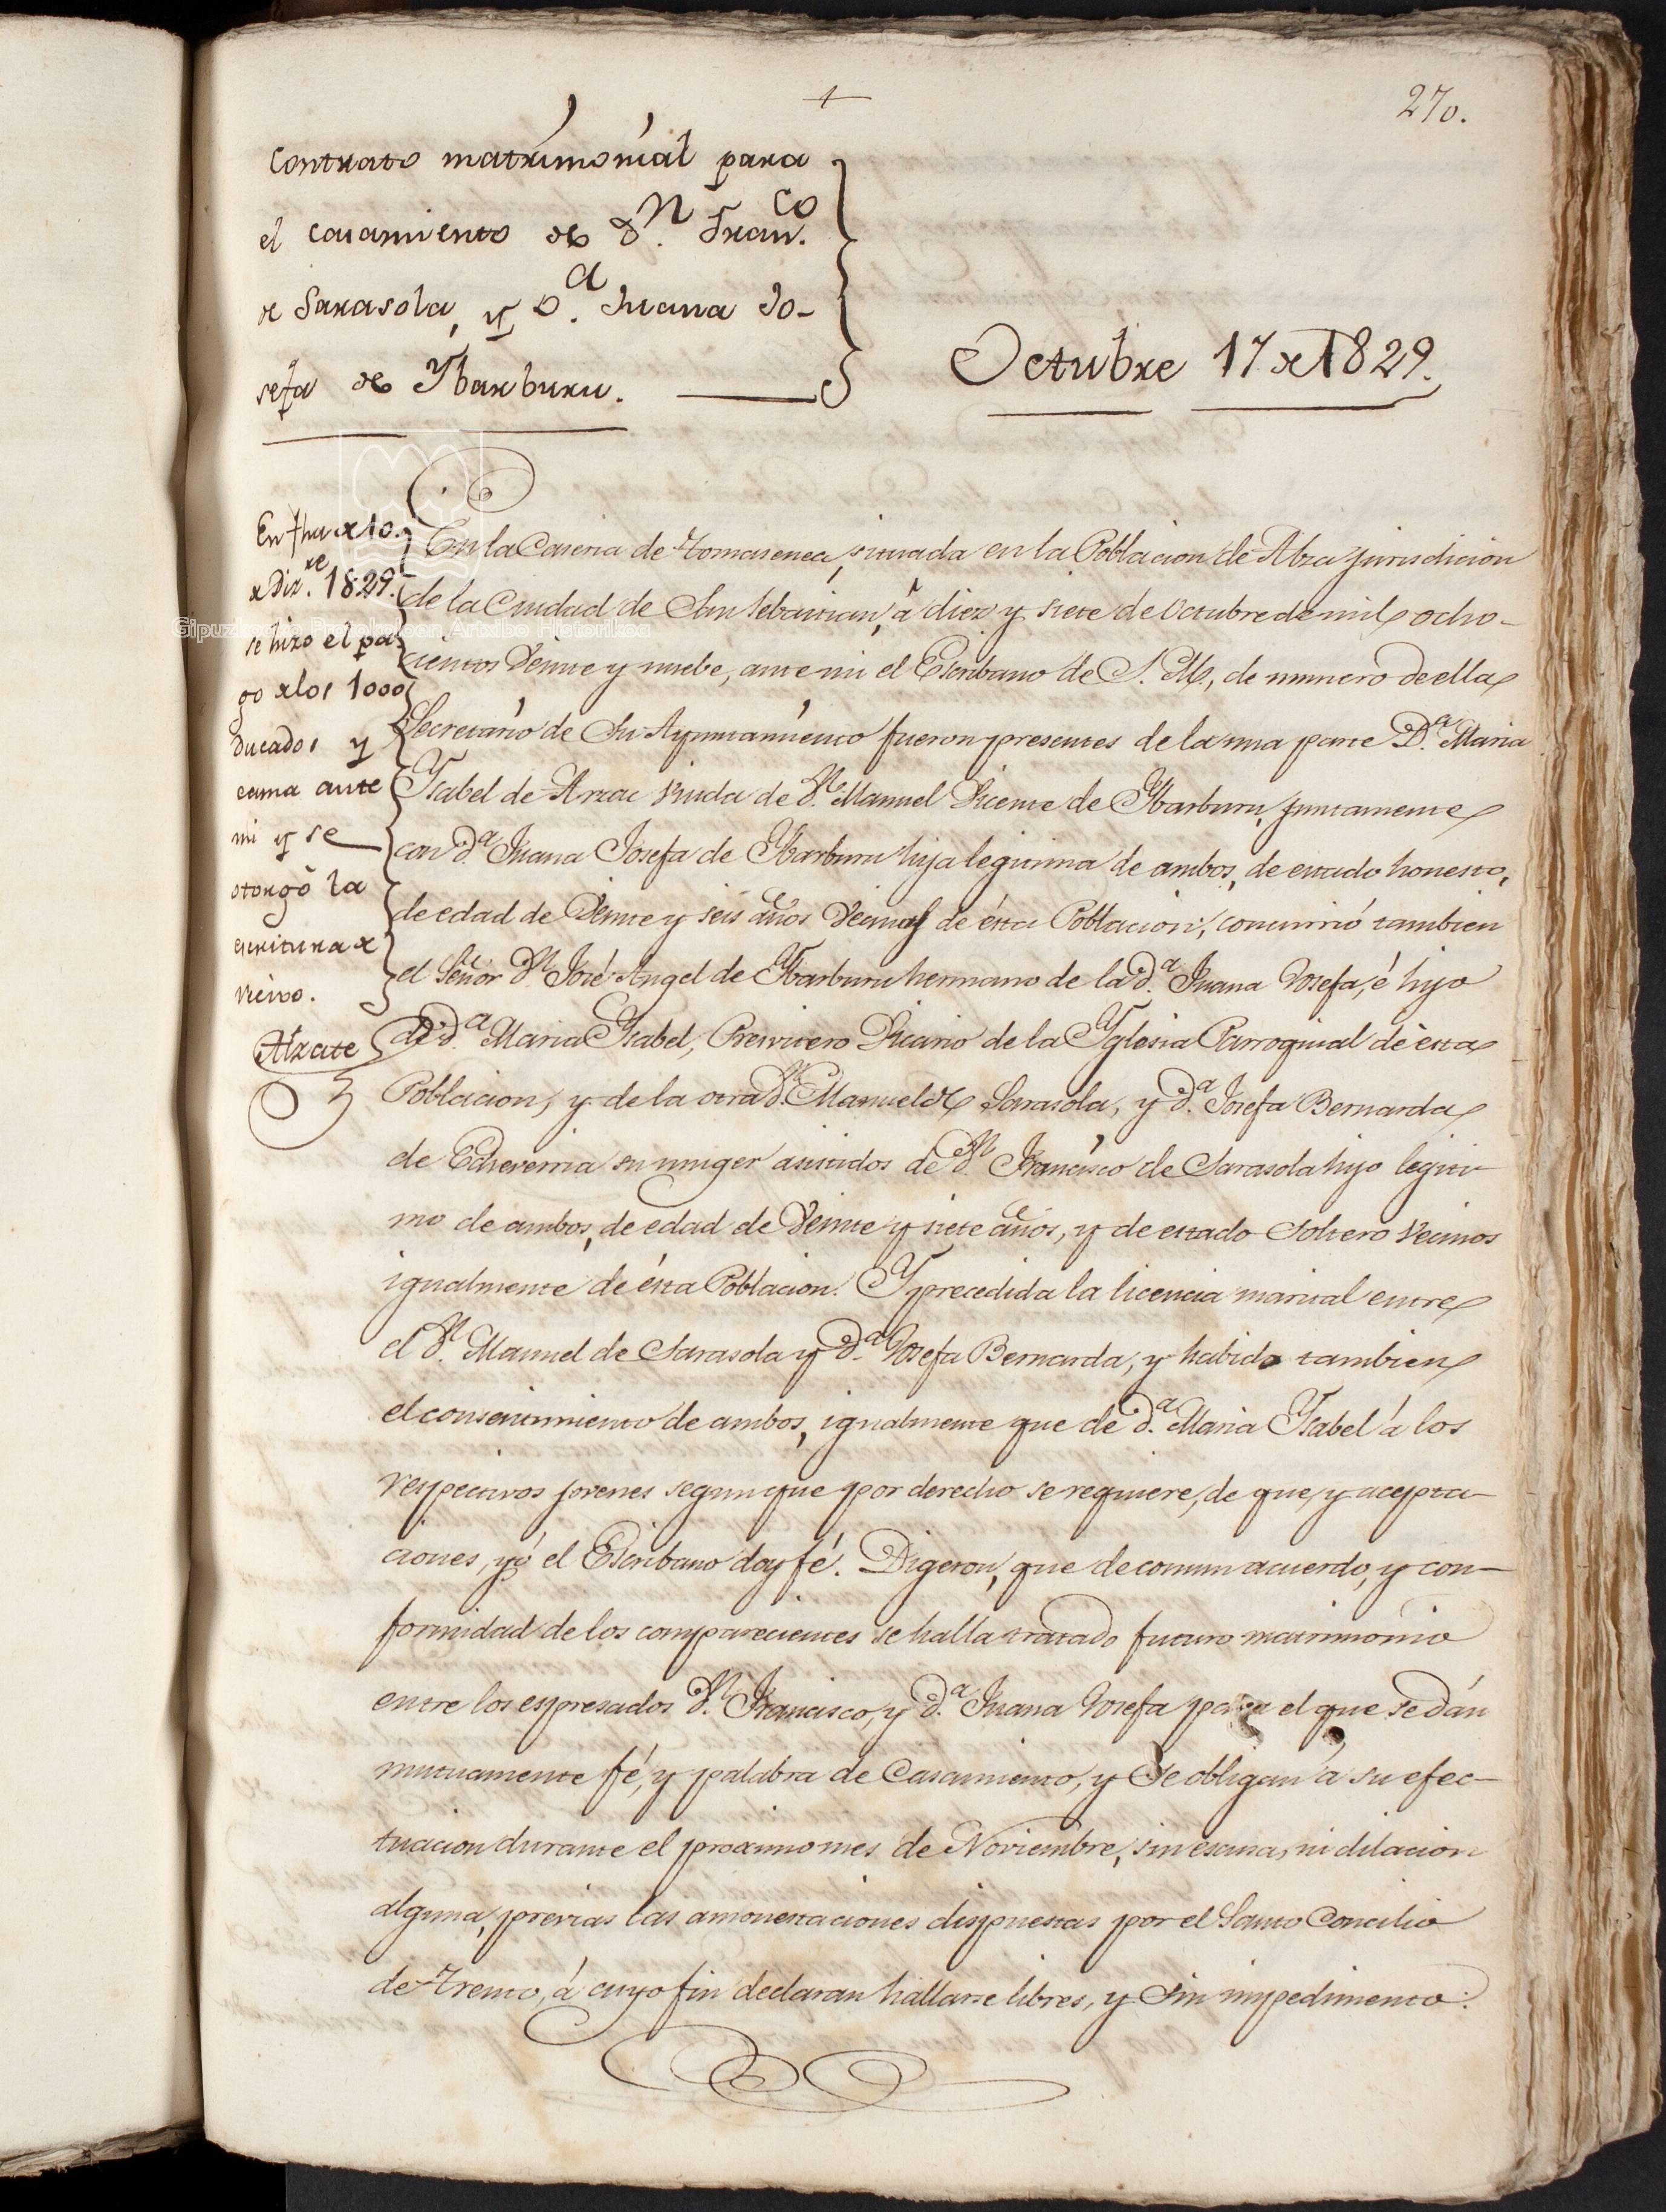 270.
Contrato matrimonial para
el casamiento de D.n Fran.co
de Sarasola, y D.a Juana Jo-
sefa de Ybarburu.
Octubre 17 de 1829.
En fha de 10.
de Diz.re 1829.
se hizo el pa-
go de los 1000
ducados y
cama ante
mi y se
otorgó la
escritura de
recivo.
Alzate
En la Caseria de Tomasenea, situada en la Poblacion de Alza jurisdicion
de la Ciudad de San Sebastian, á diez y siete de Octubre de mil ocho-
cientos Veinte y nuebe, ante mi el Escribano de S. M., de numero de ella
Secretario de Su Ayuntamiento fueron presentes de la una parte D.a Maria
Ysabel de Arzac Viuda de D.n Manuel Vicente de Ybarburu, juntamente
con D.a Juana Josefa de Ybarburu hija legitima de ambos, de estado honesto,
de edad de Veinte y seis años Vecinas de ésta Poblacion, concurrió tambien
el Señor D.n José Angel de Ybarburu hermano de la D.a Juana Josefa, é hijo
de D.a Maria Ysabel, Presvitero Vicario de la Yglesia Parroquial de ésta
Poblacion, y de la otra D.n Manuel de Sarasola, y D.a Josefa Bernarda
de Echeverria su muger asistidos de D.n Francisco de Sarasola hijo legiti-
mo de ambos, de edad de Veinte y siete años, y de estado Soltero Vecinos
igualmente de ésta Poblacion. Y precedida la licencia marital entre
el D.n Manuel de Sarasola y D.a Josefa Bernarda, y habido tambien
el consentimiento de ambos, igualmente que de D.a Maria Ysabel á los
respectivos jovenes segun que por derecho se requiere, de que, y acepta-
ciones, yó el Escribano doy fé. Digeron, que de comun acuerdo, y con-
formidad de los comparecientes se halla tratado futuro matrimonio
entre los espresados D.n Francisco, y D.a Juana Josefa para el que se dán
mutuamente fé, y palabra de Casamiento, y Se obligan á su efec-
tuacion durante el proximo mes de Noviembre, sin escusa, ni dilacion
alguna, previas las amonestaciones dispuestas por el Santo Concilio
de Trento, á cuyo fin declaran hallarse libres, y Sin impedimento.
Gipuzkoako Protokoloen Artxibo Historikoa